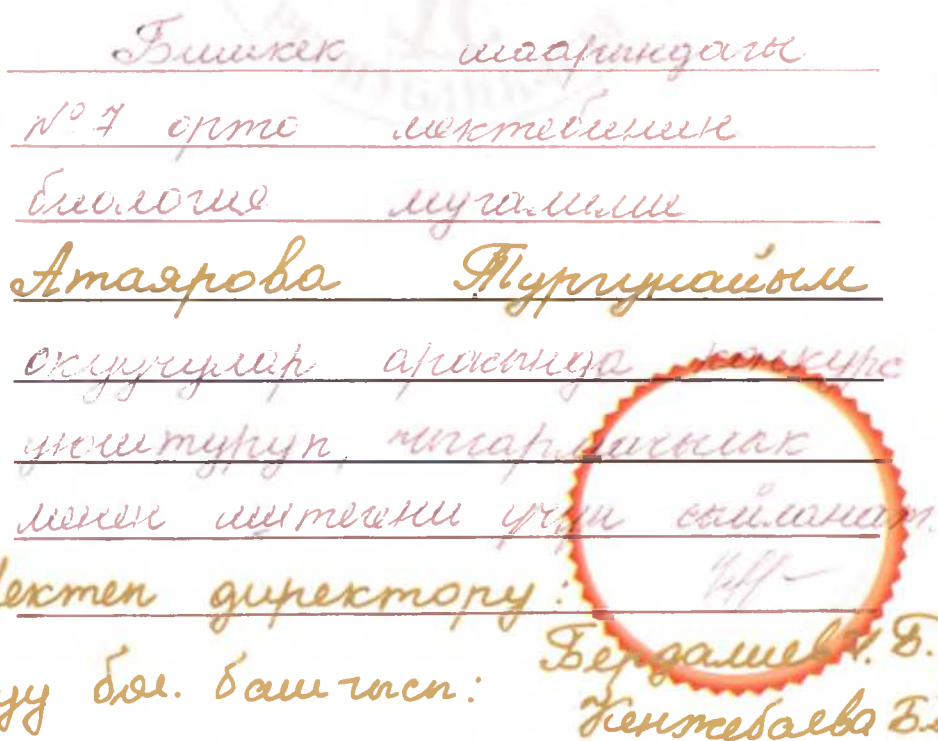 Бишкек шаарындагы
№ 7 орто мектебинин
биология мугалими
Атаярова Тургунайым
окуучулар арасында конкурс
уюштуруп, чыгармачылык
менен иштегени үчүн сыйланат.
Мектеп директору:
Бердалиев
бөл. башчысы:
Кенжебаева